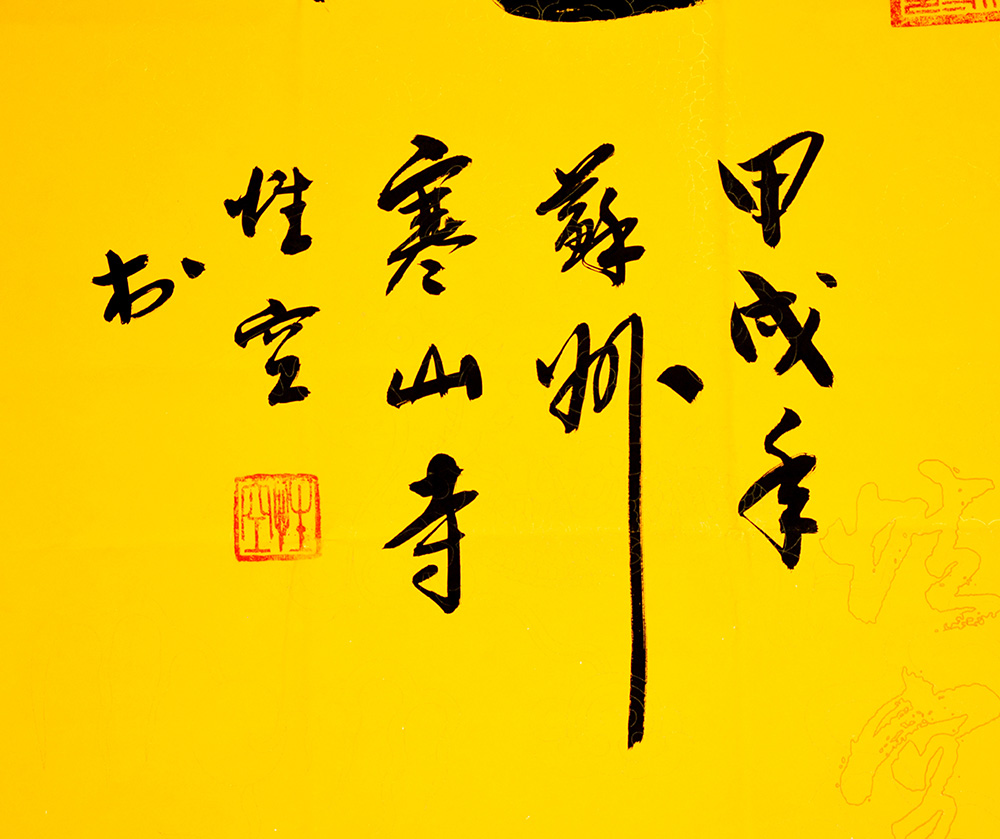 甲戌年
蘇州
寒山寺
性空
於
性空